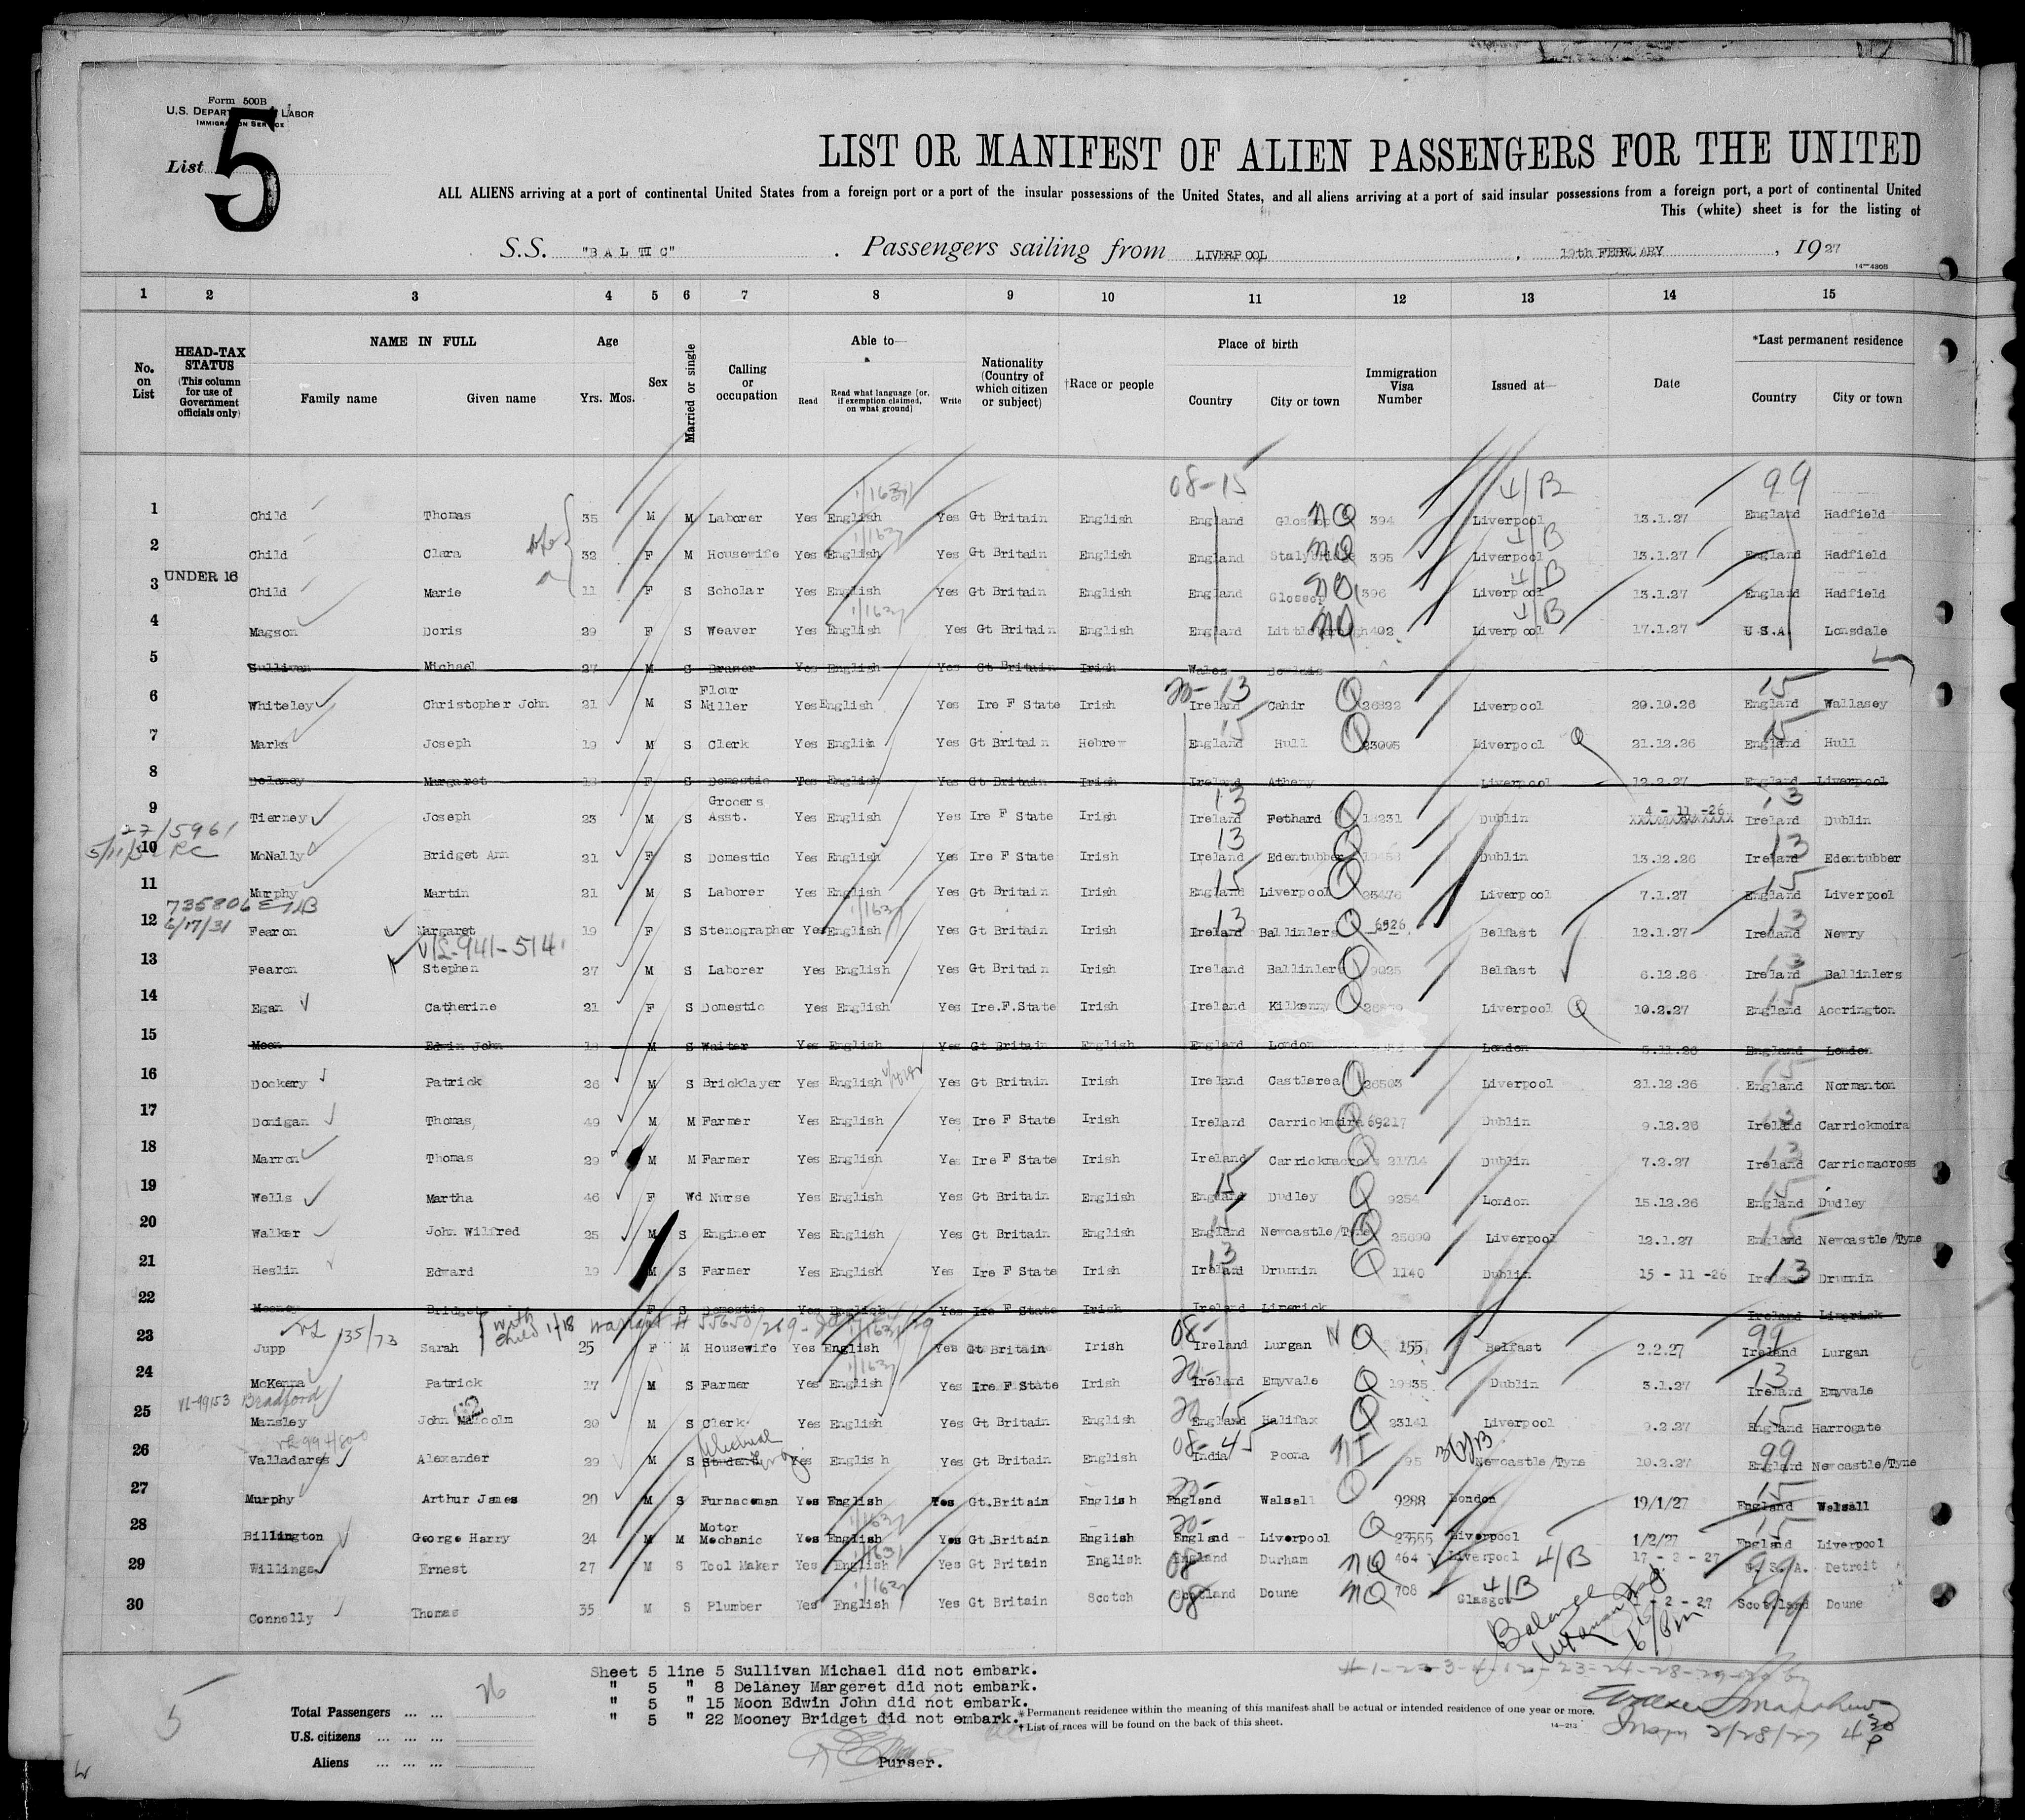 Form 500B
U.S. DEPART LABOR
IMMIGRATION SERVICE
List 5
LIST OR MANIFEST OF ALIEN PASSENGERS FOR THE UNITED
ALL ALIENS arriving at a port of continental United States from a foreign port or a port of the insular possessions of the United States, and all aliens arriving at a port of said insular possessions from a foreign port, a port of continental United
This (white) sheet is for the listing of
S.S. "BALTIC" . Passengers sailing from LIVERPOOL , 19th FEBRUARY , 1927
14—480B
1 2 3 4 5 6 7 8 9 10 11 12 13 14 15
No. on List HEAD-TAX STATUS (This column for use of Government officials only) NAME IN FULL Family name Given name Age Yrs. Mos. Sex Married or single Calling or occupation Able to— Read Read what language [or, if exemption claimed, on what ground] Write Nationality (Country of which citizen or subject) †Race or people Place of birth Country City or town Immigration Visa Number Issued at— Date *Last permanent residence Country City or town
08-15 4/B 99
1 Child Thomas 35 M M Laborer Yes English Yes Gt Britain English England Glossop NQ 394 Liverpool 13.1.27 England Hadfield
2 Child Clara 32 F M Housewife Yes English Yes Gt Britain English England NQ 395 Liverpool 13.1.27 England Hadfield
UNDER 16
3 Child Marie 11 F S Scholar Yes English Yes Gt Britain English England Glossop NQ 396 Liverpool 13.1.27 England Hadfield
4 Magson Doris 29 F S Weaver Yes English Yes Gt Britain English England Littleborough NQ 402 Liverpool 17.1.27 U.S.A. Lonsdale
5 Sullivan Michael 27 M S Yes English Yes Gt Britain Irish Wales Dowlais
6 Whiteley Christopher John 21 M S Flour Miller Yes English Yes Ire F State Irish Ireland Cahir Q 26822 Liverpool 29.10.26 England Wallasey
7 Marks Joseph 19 M S Clerk Yes English Yes Gt Britain Hebrew England Hull Q 23005 Liverpool Q 21.12.26 England Hull
8 Delaney Margaret 18 F S Domestic Yes English Yes Gt Britain Irish Ireland Atheny Liverpool 12.2.27 England Liverpool
9 Tierney Joseph 23 M S Grocers Asst. Yes English Yes Ire F State Irish Ireland Fethard Q 18231 Dublin 4 - 11 -26 Ireland Dublin
27/5961
10 McNally Bridget Ann 21 F S Domestic Yes English Yes Ire F State Irish Ireland Edentubber Q Dublin 13.12.26 Ireland Edentubber
11 Murphy Martin 21 M S Laborer Yes English Yes Gt Britain Irish England Liverpool Q 25476 Liverpool 7.1.27 England Liverpool
735806
6/17/31
12 Fearon Margaret 19 F S Stenographer Yes English Yes Gt Britain Irish Ireland Ballinlers Q 6926 Belfast 12.1.27 Ireland Newry
VL-941-514
13 Fearon Stephen 27 M S Laborer Yes English Yes Gt Britain Irish Ireland Ballinlers Q 9025 Belfast 6.12.26 Ireland Ballinlers
14 Egan Catherine 21 F S Domestic Yes English Yes Ire.F.State Irish Ireland Kilkenny Q Liverpool Q 10.2.27 England Accrington
15 Moon Edwin John 18 M S Waiter Yes English Yes Gt Britain English England London London 5.11.26 England London
16 Dockery Patrick 26 M S Bricklayer Yes English Yes Gt Britain Irish Ireland Castlerea Q 26503 Liverpool 21.12.26 England Normanton
17 Donigan Thomas 49 M M Farmer Yes English Yes Ire F State Irish Ireland Carrickmoira Q 69217 Dublin 9.12.26 Ireland Carrickmoira
18 Marron Thomas 29 M M Farmer Yes English Yes Ire F State Irish Ireland Carrickmacross Q 21714 Dublin 7.2.27 Ireland Carricmacross
19 Wells Martha 46 F Wd Nurse Yes English Yes Gt Britain English England Dudley Q 9254 London 15.12.26 England Dudley
20 Walker John Wilfred 25 M S Engineer Yes English Yes Gt Britain English England Newcastle/Tyne Q 25690 Liverpool 12.1.27 England Newcastle/Tyne
21 Heslin Edward 19 M S Farmer Yes English Yes Ire F State Irish Ireland Drumin Q 1140 Dublin 15 - 11 -26 Ireland Drumin
22 Mooney Bridget F S Domestic Yes English Yes Ire F State Irish Ireland Limerick Ireland Limerick
with child 1/18 Warrant # 55650/269
23 Jupp Sarah 25 F M Housewife Yes English Yes Gt Britain Irish Ireland Lurgan NQ 155 Belfast 2.2.27 Ireland Lurgan
24 McKenna Patrick 17 M S Farmer Yes English Yes Ire F State Irish Ireland Emyvale Q 19435 Dublin 3.1.27 Ireland Emyvale
VL-99153 Bradford
25 Mansley John Malcolm 20 M S Clerk Yes English Yes Gt Britain English England Halifax Q 23141 Liverpool 9.2.27 England Harrogate
26 Valladares Alexander 29 M S Student Yes English Yes Gt Britain English India Poona NI 95 Newcastle/Tyne 10.2.27 England Newcastle/Tyne
27 Murphy Arthur James 20 M S Furnaceman Yes English Yes Gt.Britain English England Walsall Q 9288 London 19/1/27 England Walsall
28 Billington George Harry 24 M M Motor Mechanic Yes English Yes Gt.Britain English England Liverpool Q 27555 Liverpool 1/2/27 England Liverpool
29 Willings Ernest 27 M S Tool Maker Yes English Yes Gt Britain English England Durham NQ 464 Liverpool 4/B 17 - 2 - 27 U.S.A. Detroit
30 Connelly Thomas 35 M S Plumber Yes English Yes Gt Britain Scotch Scotland Doune NQ 708 Glasgow 4/B 2 - 27 Scotland Doune
Sheet 5 line 5 Sullivan Michael did not embark.
" 5 " 8 Delaney Margeret did not embark.
" 5 " 15 Moon Edwin John did not embark.
" 5 " 22 Mooney Bridget did not embark.
Purser.
Total Passengers ... ... 26
U.S. citizens ... ... ...
Aliens ... ... ...
5
* Permanent residence within the meaning of this manifest shall be actual or intended residence of one year or more.
† List of races will be found on the back of this sheet.
14—213
2/28/27